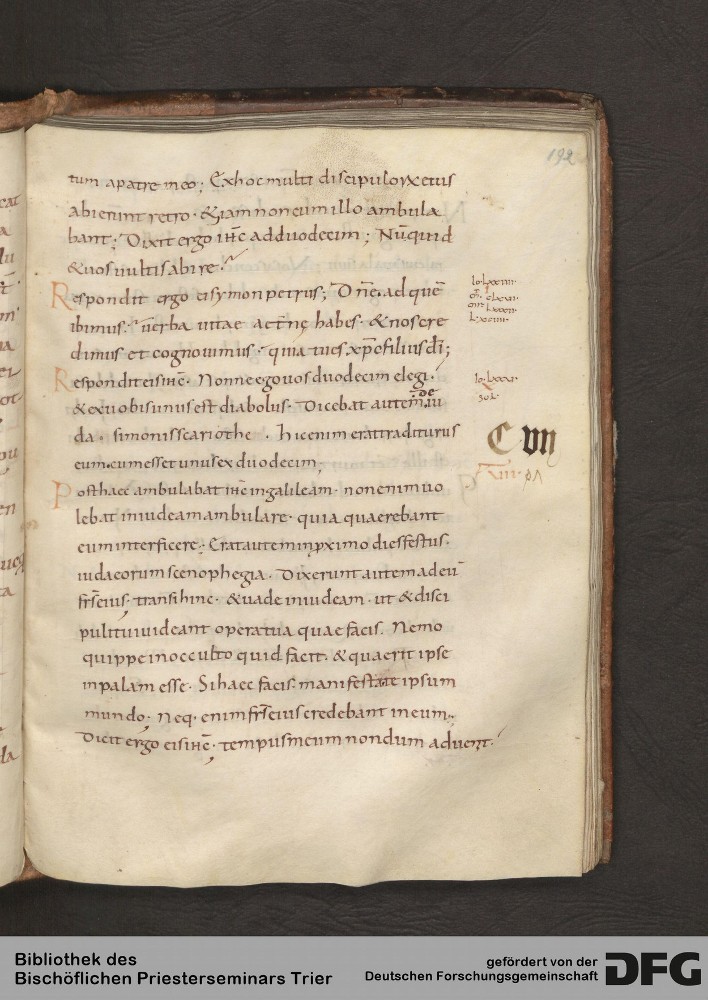 192
tum apatre meo; Exhoc multi discipulorx eius
abierunt retro· &iam non cum illo ambula
bant; Dixit ergo ihc adduodecim; Nuquid
&uos uultis abire·
Respondit ergo ei symon petrus; Dne· ad que
ibimus· uerba uitae aetne habes· &nos cre
dimus et cognouimus· quia tu es xpc filius di;
Respondit eis ihc· Nonne ego uos duodecim elegi·
&ex uobis unus est diabolus· Dicebat autem de iu
da· simonis scariothe· hic enim erat traditurus
eum· cum esset unus ex duodecim;
Posthaec ambulabat ihc in galileam· non enim uo
lebat in iudeam ambulare· quia quaerebant
eum interficere; Erat autem in pximo dies festus·
iudaeorum scenophegia· Dixerunt autem ad eu
frs eius· transi hinc· &uade in iudeam· ut & disci
puli tui uideant opera tua quae facis. Nemo
quippe in occulto quid facit· & quaerit ipse
in palam esse· Si haec facis· manifesta te ipsum
mundo· Neq· enim frs eius credebant in eum·
Dicit ergo eis ihc· tempus meum nondum aduenit·
C VII
Bibliothek des
Bischöflichen Priesterseminars Trier
gefördert von der
Deutschen Forschungsgemeinschaft
DFG